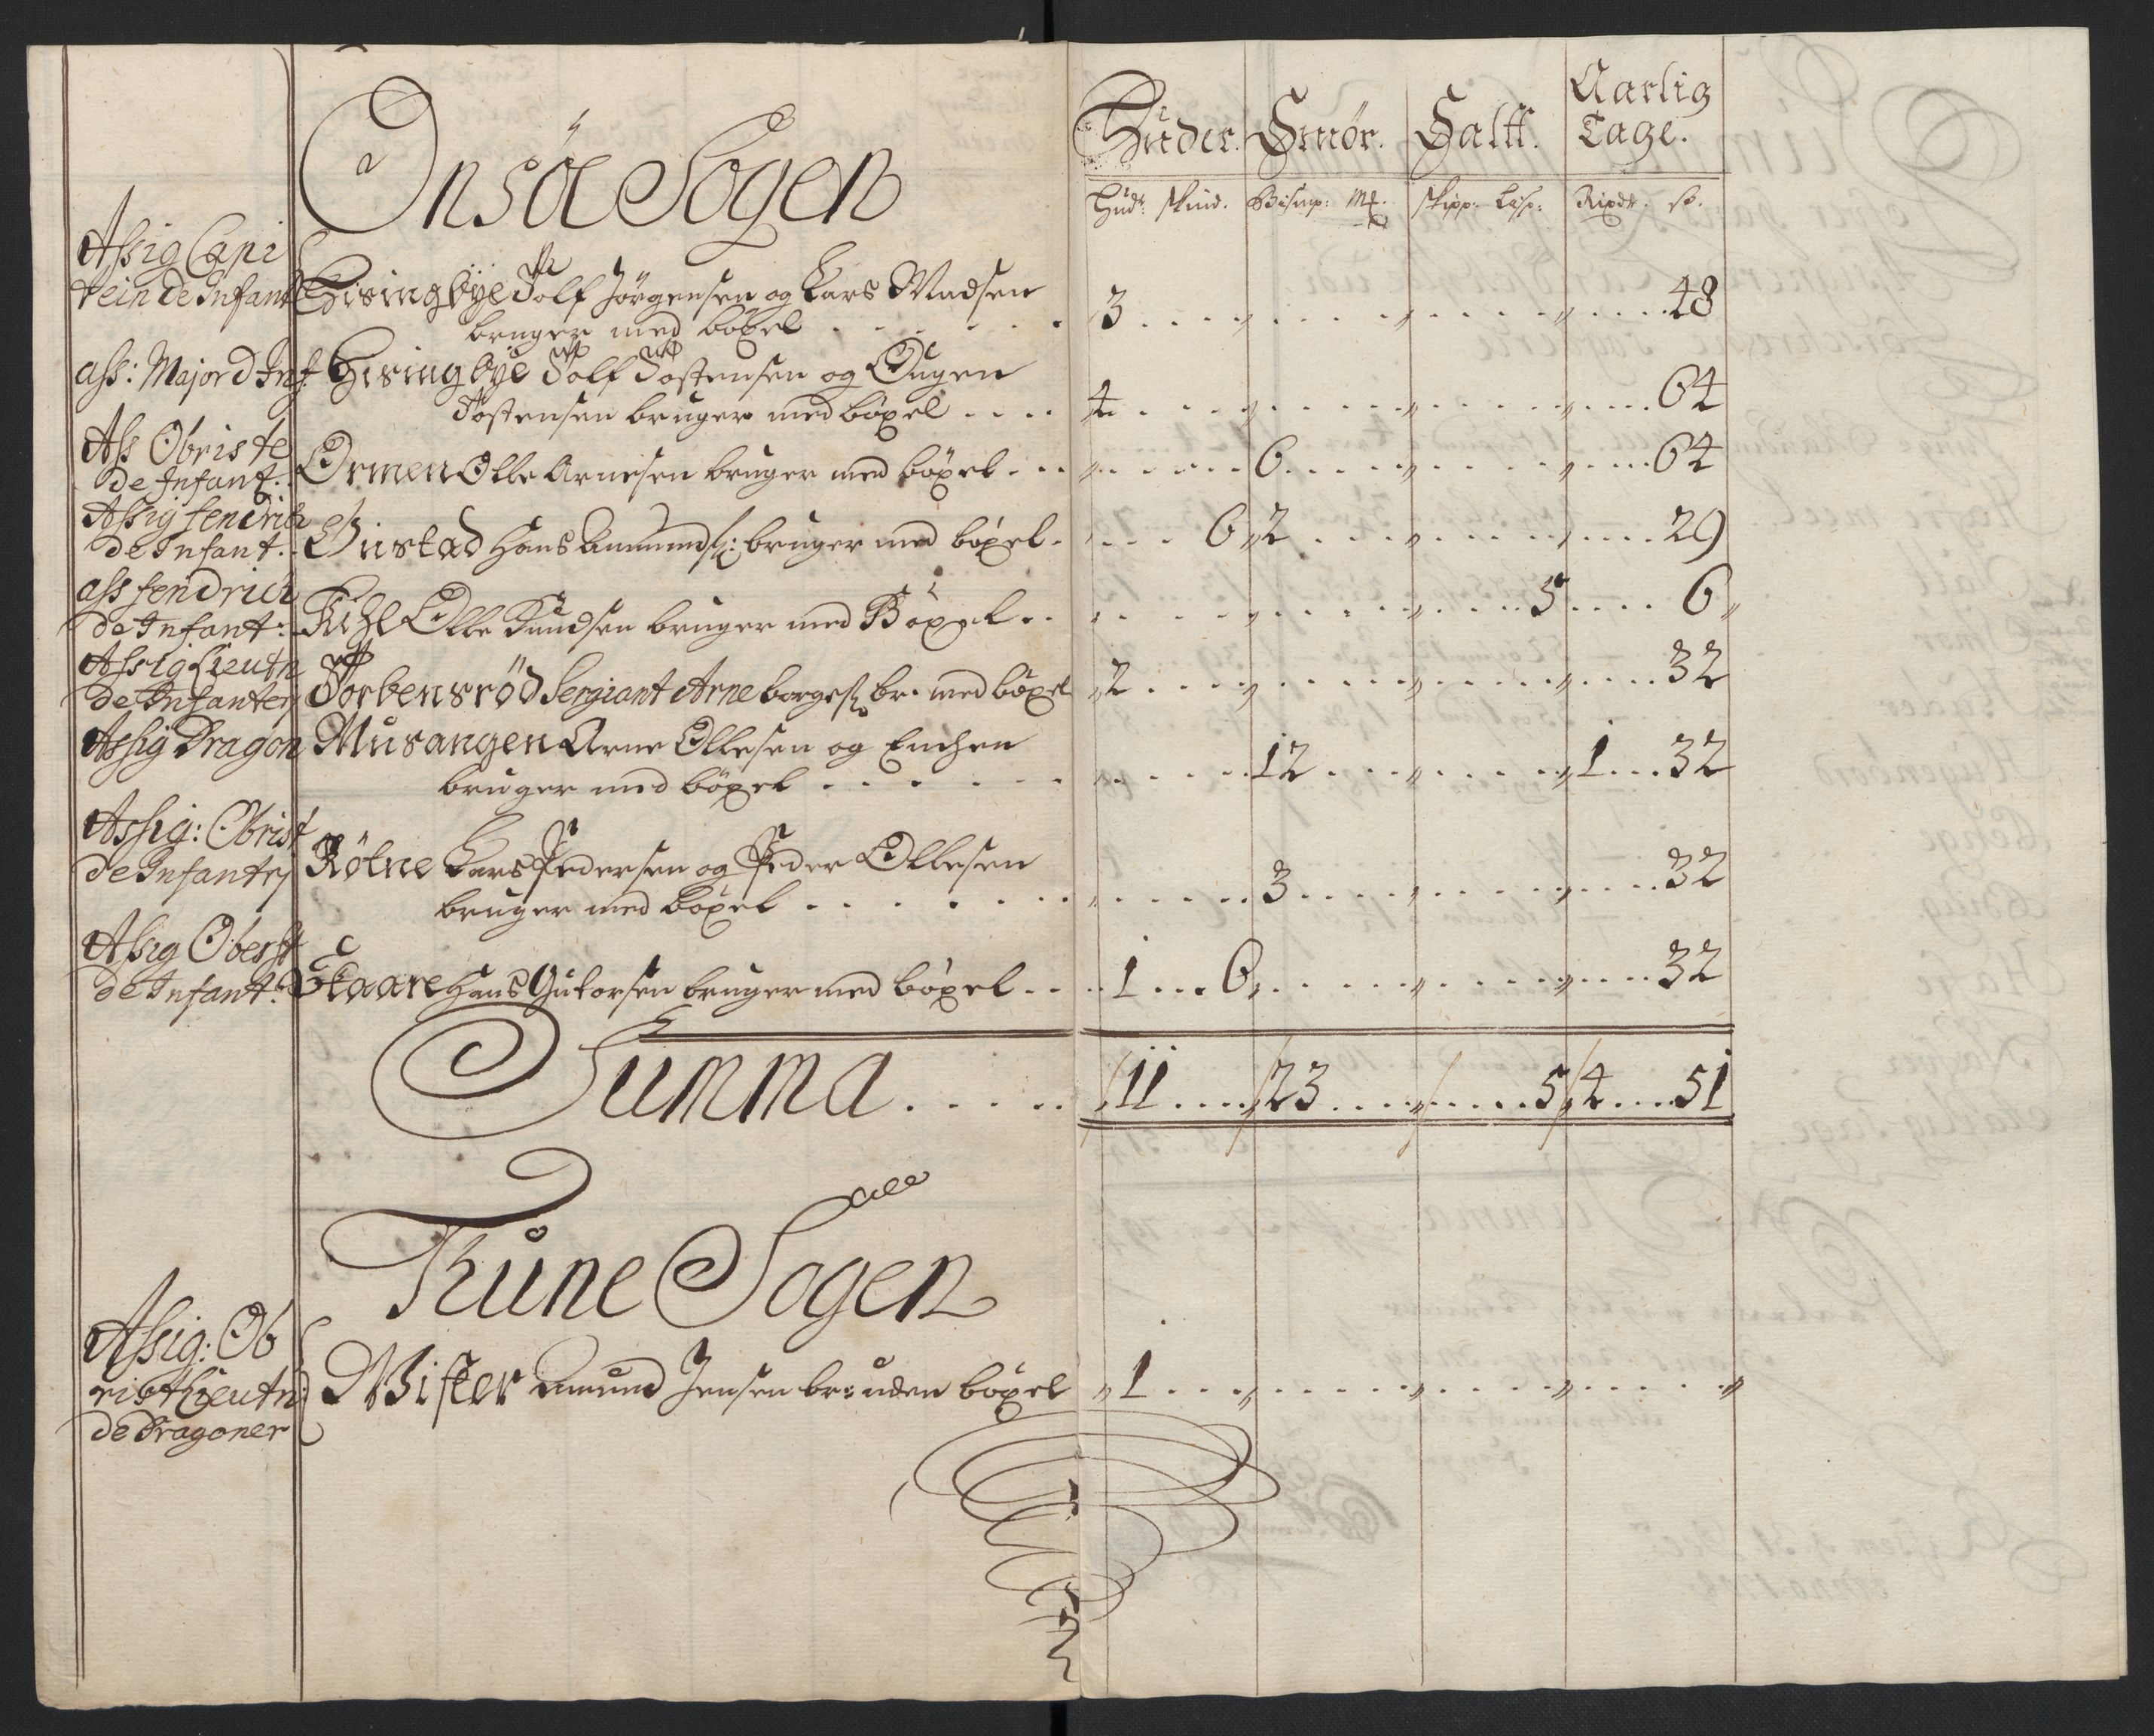 Onsöe Sogen
Huder. Smör. Saltt. Aarlig
Tage.
Hudr. skind. Bismp: Mk. skipp. Lisp: Rixdr. sk.
Assig Capi
tein de Infant Hisingbye Tolf Jörgensen og Lars Madsen
bruger med böxel . . . . . . 3 . . . . „ . . . . . „ . . . . „ . . . . 48
ass: Major d Inf: Hisingbye Tolf Tostensen og Ougen
Tostensen bruger med böxel . . . . 4 . . . . „ . . . . . „ . . . . „ . . . . 64
Ass Obriste
de Infant. Ormen Olle Arnesen bruger med böxel . . . „ . . . . . 6 . . . . . „ . . . . „ . . . . 64
Assig fendrich
de Infant. Gustad Hans Amunds: bruger med böxel . . . . 6 „ 2 . . . . „ . . . . „ . . . . 29
ass fendrich
de Infant: Kihl Olle Knudsen bruger med Böxel . . . . . . . . . . . . . . 5 . . . . 6 „
Assig Lieutn
de Infanterj Torbensröd Sergiant Arne borges br. med böxel „ 2 . . . . „ . . . . . „ . . . . „ . . . . 32
Assig Dragon Musangen Arne Ollesen og Enchen
bruger med böxel . . . . . . „ . . . . . 12 . . . . „ . . . . „ 1 . . . 32
Assig: Obrist
de Infantrj Rölne Lars Pedersen og Peder Ollesen
bruger med böxel . . . . . . „ . . . . . 3 . . . . „ . . . . „ . . . . 32
Assig Oberst
de Infant: Skaare Hans Gutorsen bruger med böxel . . . . 1 . . . 6 „ . . . . „ . . . . „ . . . . 32
Summa . . . . . 11 . . . . „ 23 . . . . „ . . . . . 5 „ 4 . . . . 51
Thune Sogen
Assig: Ob
rist Lieutn:
de Dragoner
Wister Amund Jensen br: uden böxel „ 1 . . . . „ . . . . . „ . . . . „ . . . . . „